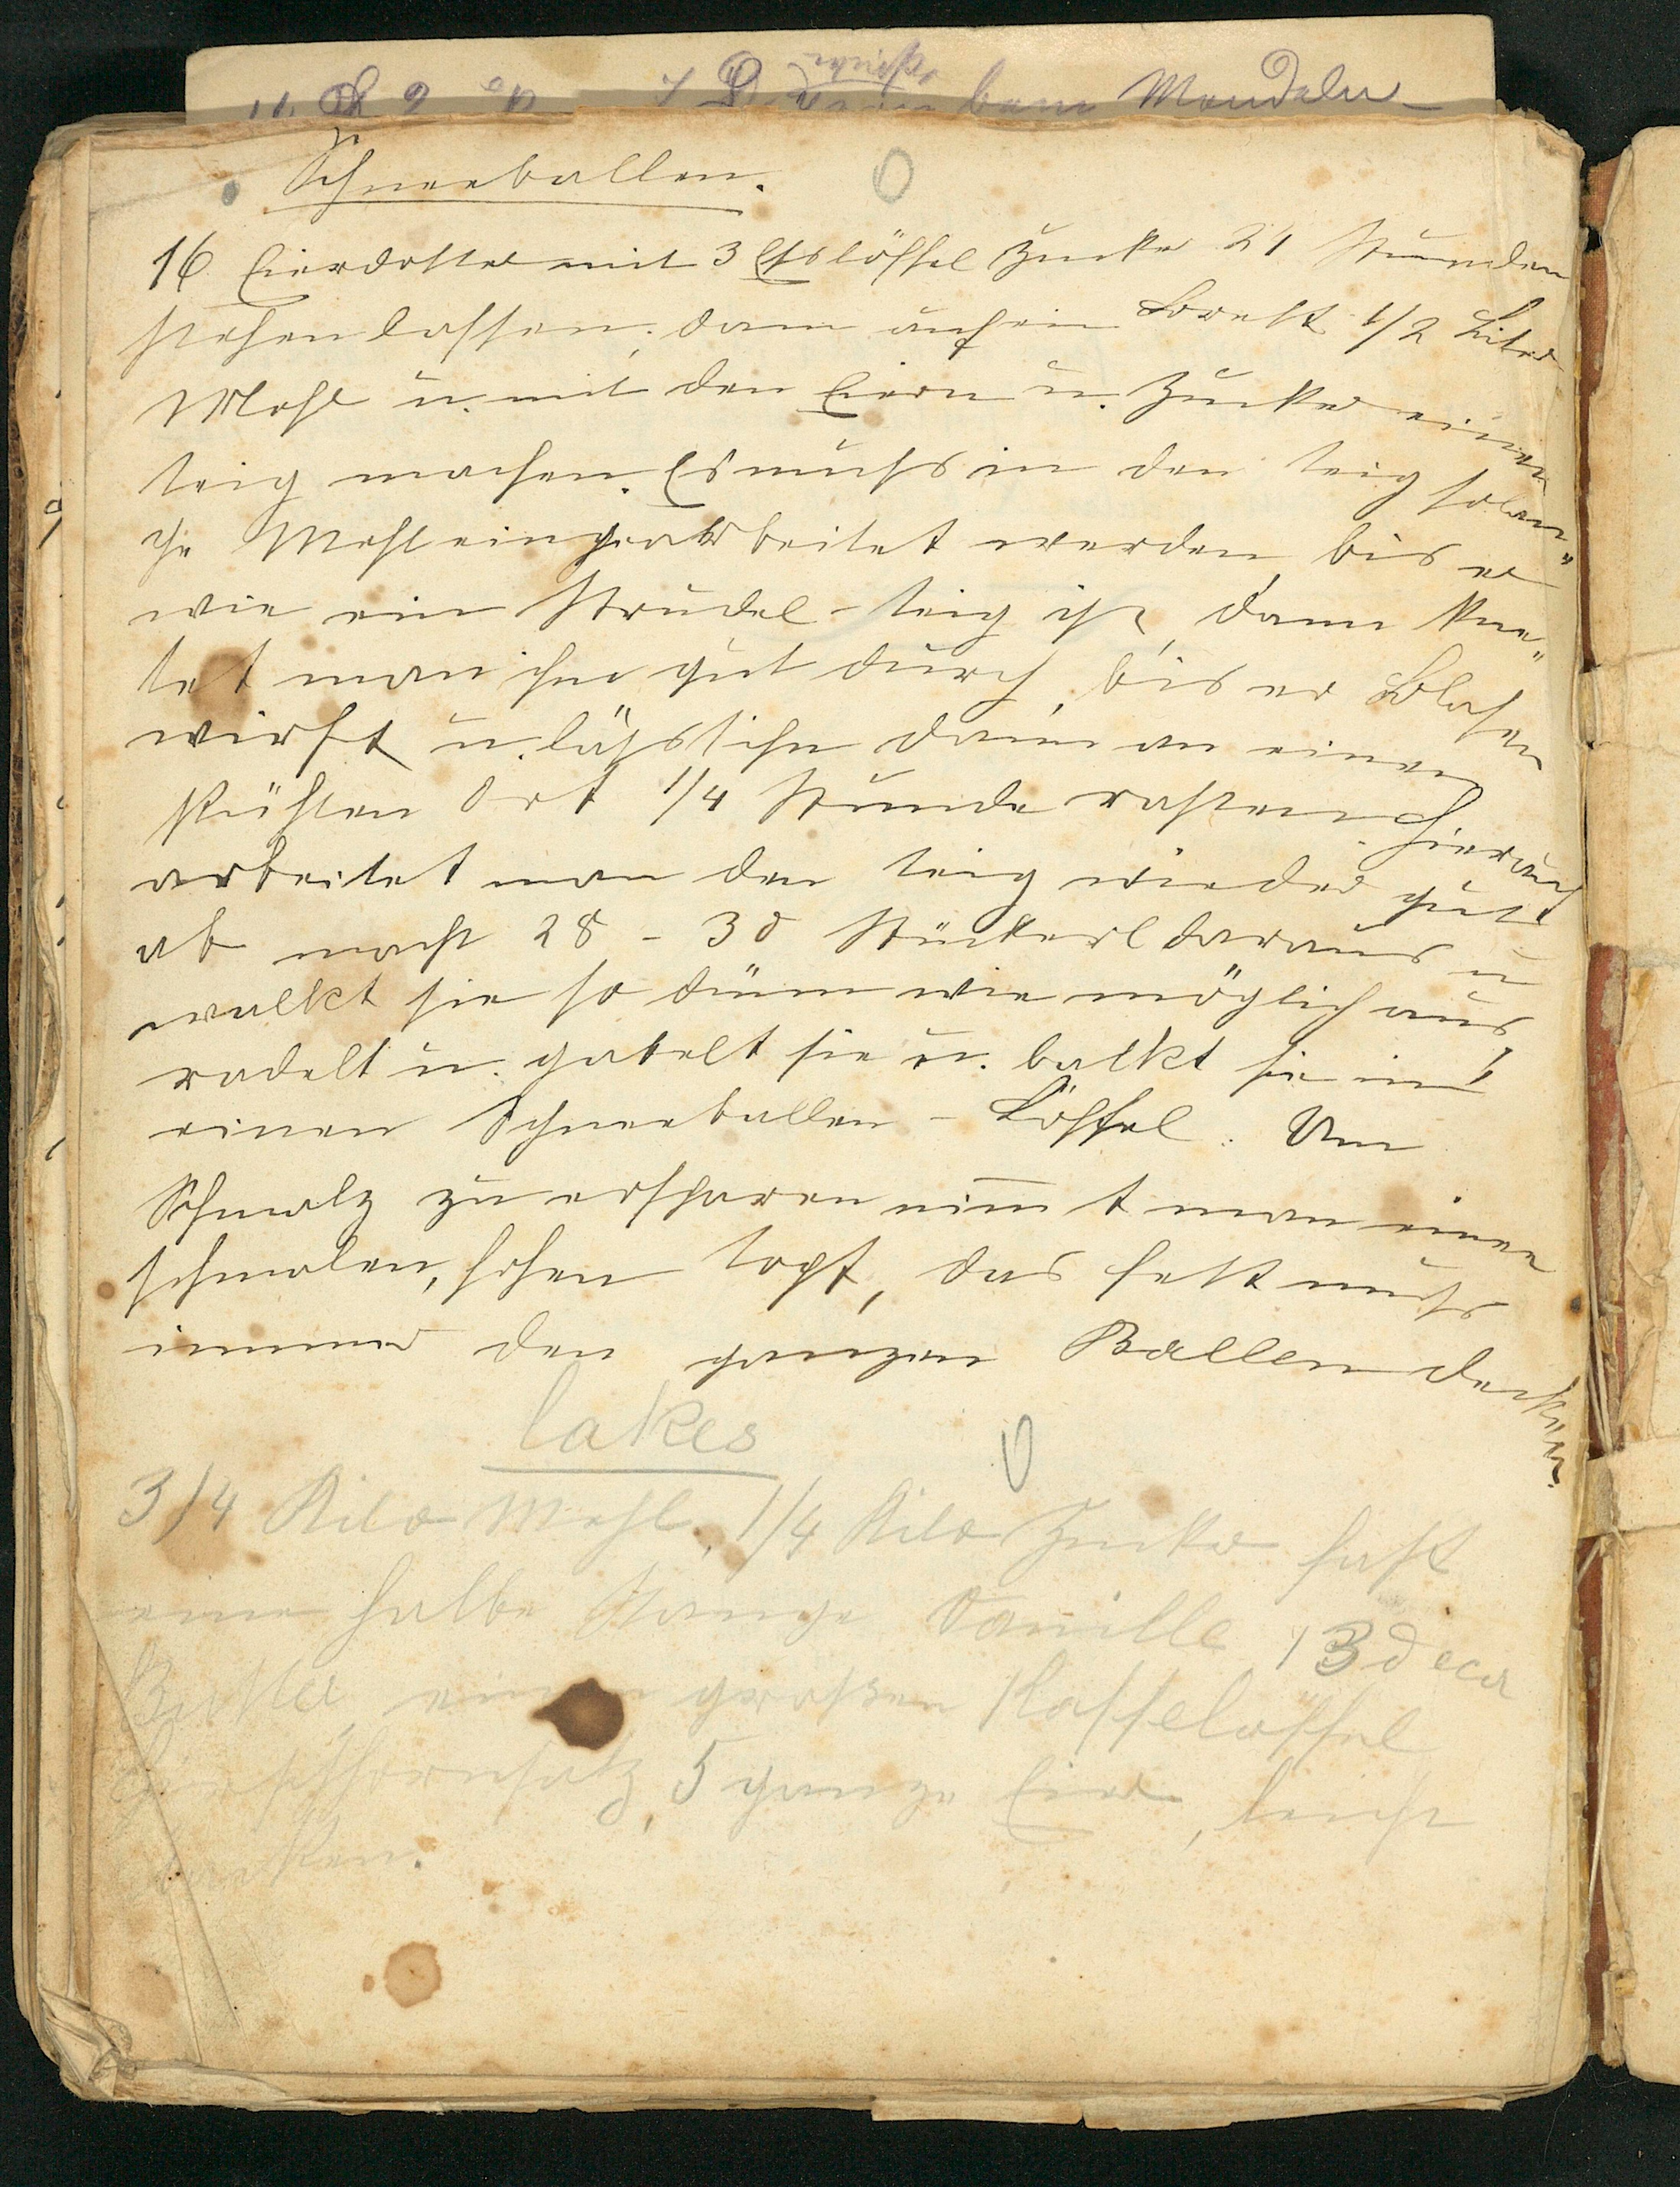 Mandeln
Schneeballen.
16 Eierdotter mit 3 Esslöffel Zucker 24 Stunden
stehen lassen, dann auf ein Brett 1/2 Liter
Mehl u. mit den Eiern u. Zucker einen
teig machen. Es muhs in den teig solan"
ge Mehl eingearbeitet werden, bis er
wie ein Strudel-teig ist, dann kne"
tet man ihn gut durch, bis er Blasen
wirft u. lässt ihn dann an einen
kühlen Ort 1/4 Stunde rasten. Hierauf
arbeitet man den teig wieder gut
ab macht 28 - 30 Stückerl daraus u
walkt sie so dünn wie möglich aus,
radelt u. gabelt sie u. balkt sie in
einen Schneeballen-Löffel. Um
Schmalz zu ersparen nimmt man einen
schmalen, hohen topf, das fett muss
immer den ganzen Ballen decken.
Cakes
3/4 Kilo Mehl, 1/4 Kilo Zucker fast
eine halbe Stange Vanille, 13 deca
Butter, einen großen Kaffelöffel
Hirschhornsalz, 5 ganze Eier, leicht
backen.